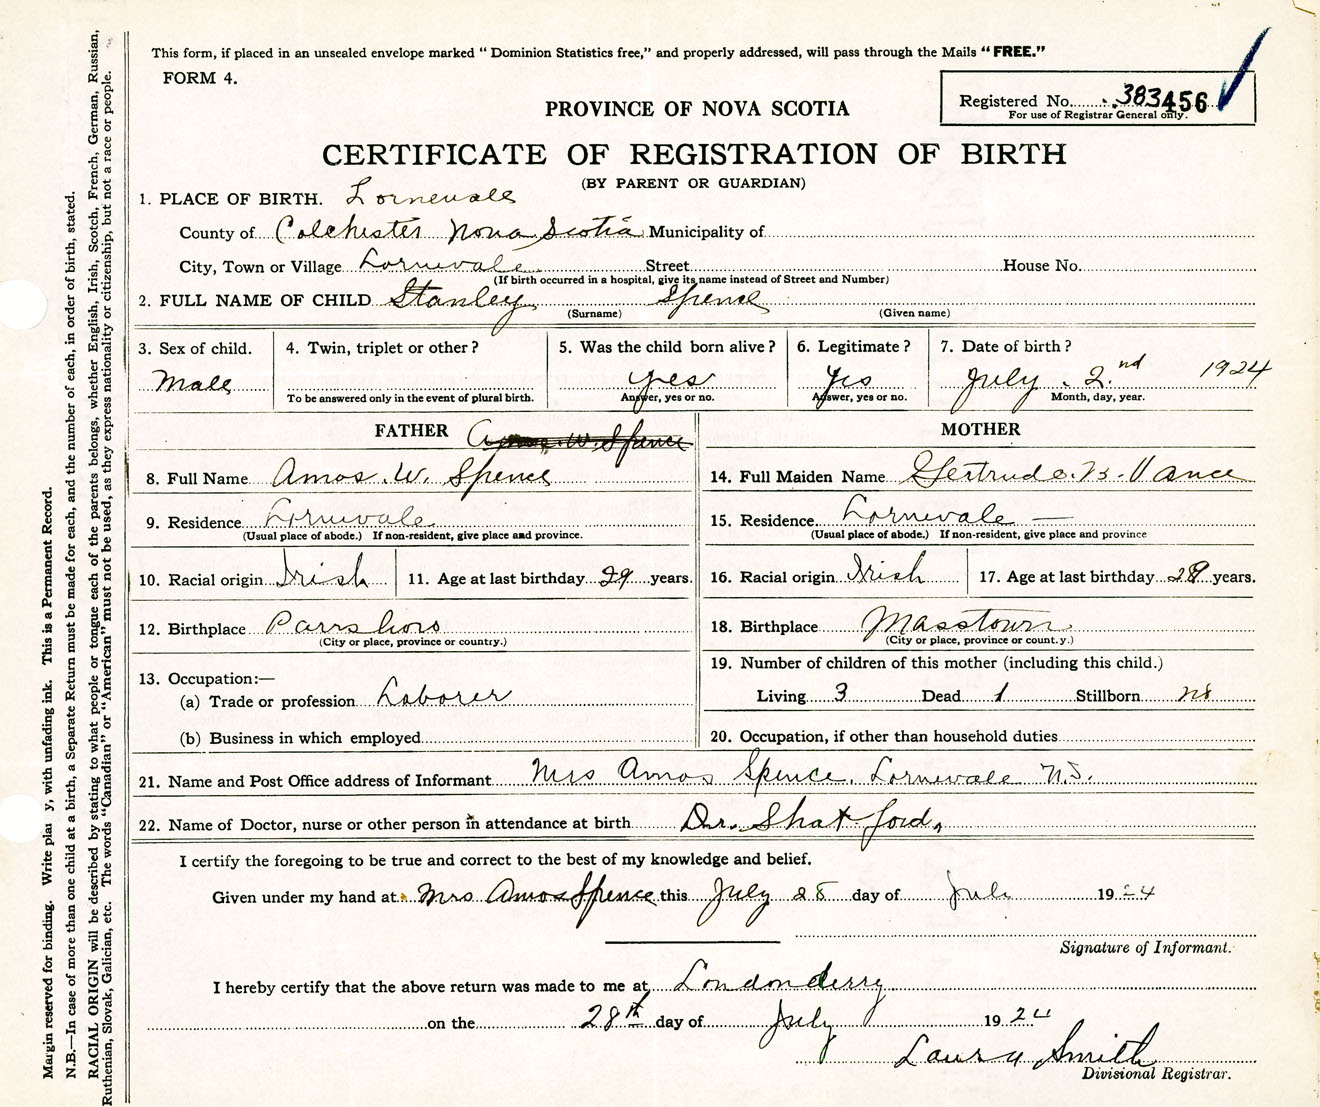 This form, if placed in an unsealed envelope marked "Dominion Statistics free," and properly addressed, will pass through the Mails "FREE."
FORM 4.
Registered No. 383456
For use of Registrar General only.
PROVINCE OF NOVA SCOTIA
CERTIFICATE OF REGISTRATION OF BIRTH
(BY PARENT OR GUARDIAN)
1. PLACE OF BIRTH. Lornevale
County of Colchester Nova Scotia Municipality of
City, Town or Village Lornevale Street House No.
(If birth occurred in a hospital, give its name instead of Street and Number)
2. FULL NAME OF CHILD Stanley Spence
(Surname) (Given name)
3. Sex of child. 4. Twin, triplet or other? 5. Was the child born alive? 6. Legitimate? 7. Date of birth?
Male yes Yes July 2nd 1924
To be answered only in the event of plural birth. Answer, yes or no. Answer, yes or no. Month, day, year.
FATHER Amos W. Spence MOTHER
8. Full Name Amos W. Spence 14. Full Maiden Name Gertrude B. Vance
9. Residence Lornevale 15. Residence. Lornevale —
(Usual place of abode.) If non-resident, give place and province. (Usual place of abode.) If non-resident, give place and province
10. Racial origin Irish 11. Age at last birthday 29 years. 16. Racial origin Irish 17. Age at last birthday years.
12. Birthplace Parrsboro 18. Birthplace Masstown
(City or place, province or country.) (City or place, province or count.y.)
19. Number of children of this mother (including this child.)
13. Occupation:—
(a) Trade or profession Laborer Living 3 Dead 1 Stillborn no
(b) Business in which employed 20. Occupation, if other than household duties
21. Name and Post Office address of Informant Mrs Amos Spence. Lornevale N.S.
22. Name of Doctor, nurse or other person in attendance at birth Dr. Shatford,
I certify the foregoing to be true and correct to the best of my knowledge and belief.
Given under my hand at Mrs Amos Spence this July 28 day of July 1924
Signature of Informant.
I hereby certify that the above return was made to me at Londonderry
on the 28th day of July 1924
Laura Smith
Divisional Registrar.
Margin reserved for binding. Write plai y, with unfading ink. This is a Permanent Record.
N.B.—In case of more than one child at a birth, a Separate Return must be made for each, and the number of each, in order of birth, stated.
RACIAL ORIGIN will be described by stating to what people or tongue each of the parents belongs, whether English, Irish, Scotch, French, German, Russian,
Ruthenian, Slovak, Galician, etc. The words "Canadian" or "American" must not be used, as they express nationality or citizenship, but not a race or people.